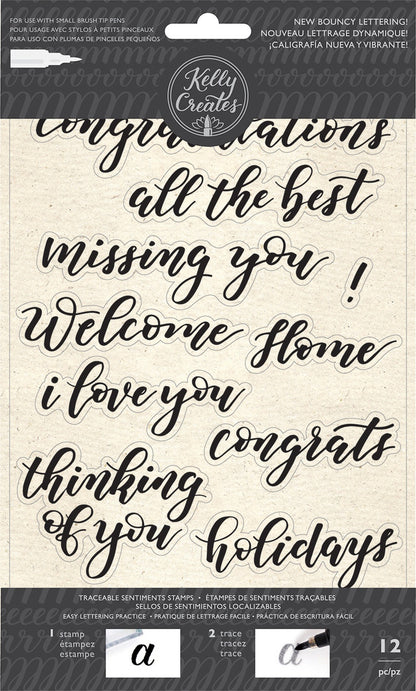 FOR USE WITH SMALL BRUSH TIP PENS
POUR USAGE AVEC STYLOS À PETITS PINCEAUX
PARA USO CON PLUMAS DE PINCELES PEQUEÑOS
NEW BOUNCY LETTERING!
NOUVEAU LETTRAGE DYNAMIQUE!
¡CALIGRAFÍA NUEVA Y VIBRANTE!
Kelly
Creates
congratulations
all the best
missing you
!
Welcome Home
i love you
congrats
thinking
of you
holidays
TRACEABLE SENTIMENTS STAMPS • ÉTAMPES DE SENTIMENTS TRAÇABLES
SELLOS DE SENTIMIENTOS LOCALIZABLES
EASY LETTERING PRACTICE • PRATIQUE DE LETTRAGE FACILE • PRÁCTICA DE ESCRITURA FÁCIL
1 stamp
étampez
estampe
a
2 trace
tracez
trace
a
12
pc/pz